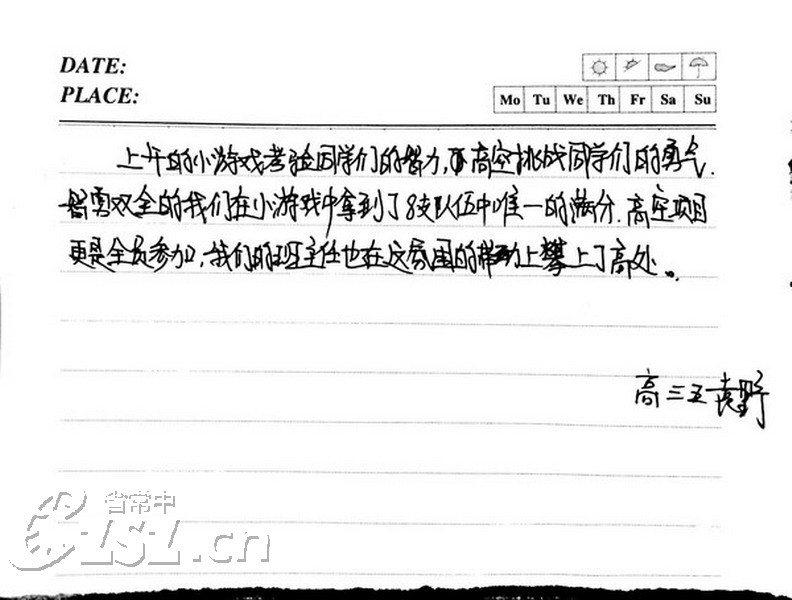 DATE:
PLACE:
Mo Tu We Th Fr Sa Su
上午的小游戏考验同学们的智力,高空挑战同学们的勇气.
智勇双全的我们在小游戏中拿到了8支队伍中唯一的满分.高空项目
更是全员参加,我们的班主任也在这氛围的带动上攀上了高处。
高三五 袁野
省常中
CSZ.cn